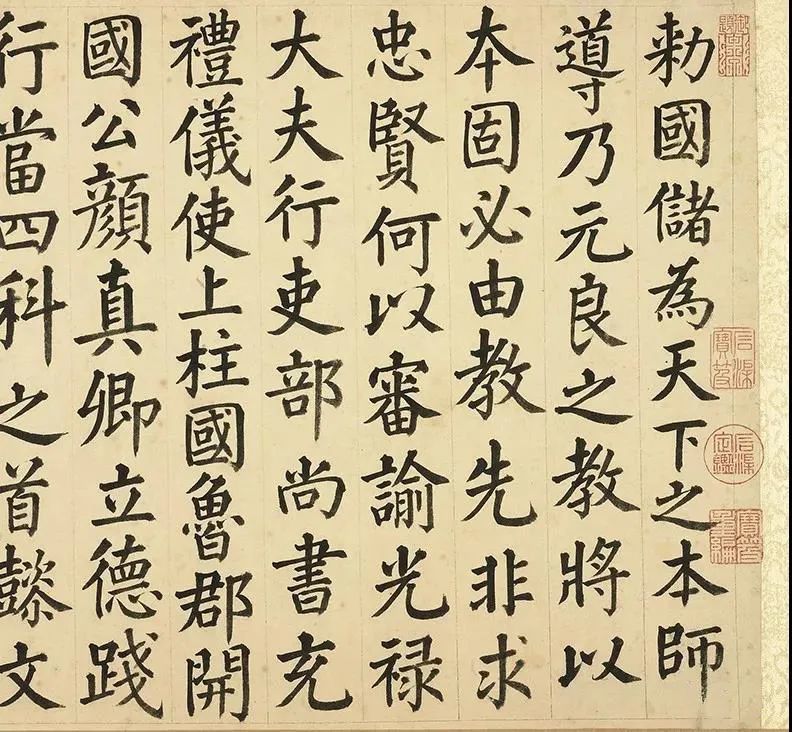 勅國儲為天下之本師
導乃元良之教將以
本固必由教先非求
忠賢何以審諭光禄
大夫行吏部尚書充
禮儀使上柱國魯郡開
國公顔真卿立德踐
行當四科之首懿文
石渠寶笈
石渠定鑑
寶笈重編